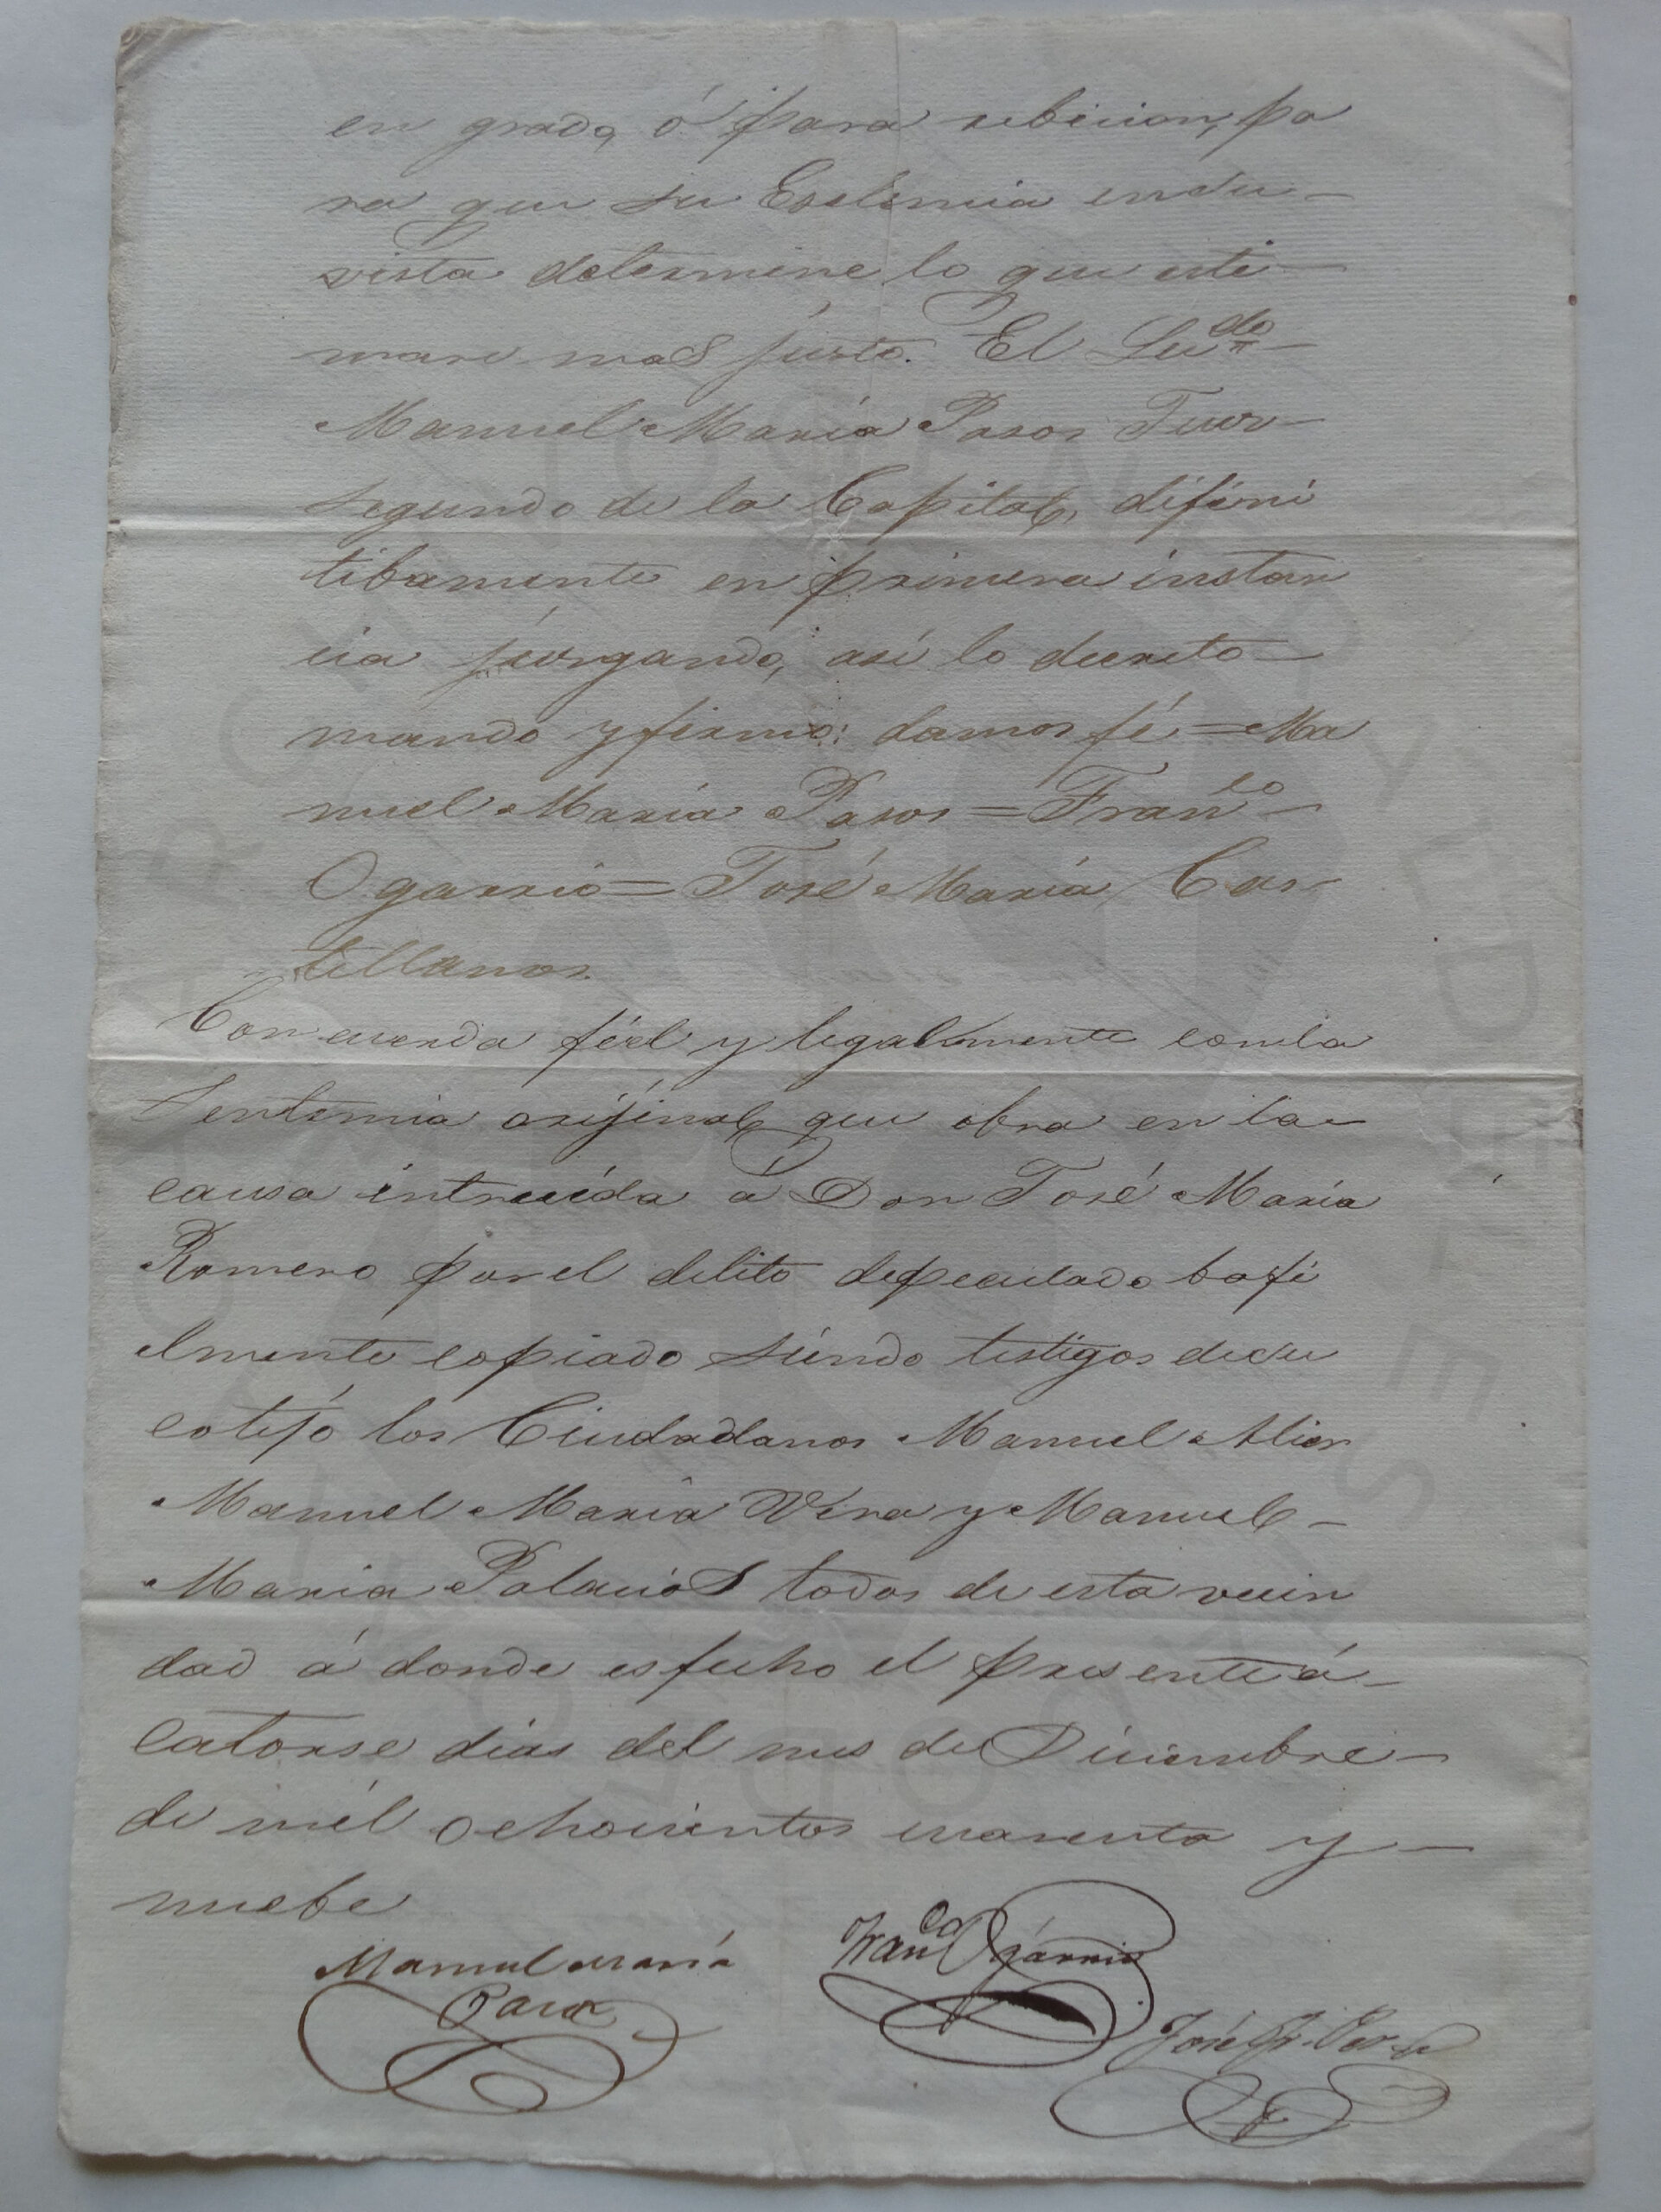 en grado, ó para rebicion, pa
ra que su Eselencia en su
vista determine lo que esti
mare mas justo. El Licdo
Manuel María Pasos Juez
segundo de la Capital, difini
tibamente en primera instan
cia juzgando, asi lo decreto
mando y firmo: damos fé = Ma
nuel María Pasos = Franco
Ogarrio = José María Cas
tellanos.
Concuerda fiel y legalmente con la
Sentencia orijinal que obra en la
causa intruida á Don José María
Romero por el delito de peculado ba fi
elmente copiado siendo testigos de su
cotejo los Ciudadanos Manuel
Manuel María Vera y Manuel
Maria Palacios todos de esta vecin
dad á donde es fecho el presente á
catorse dias del mes de Diciembre
de mil ochocientos cuarenta y
nuebe
Manuel María
Pasos
Franco Ogárrio
José
ARCHIVO GENERAL DEL ESTADO DE